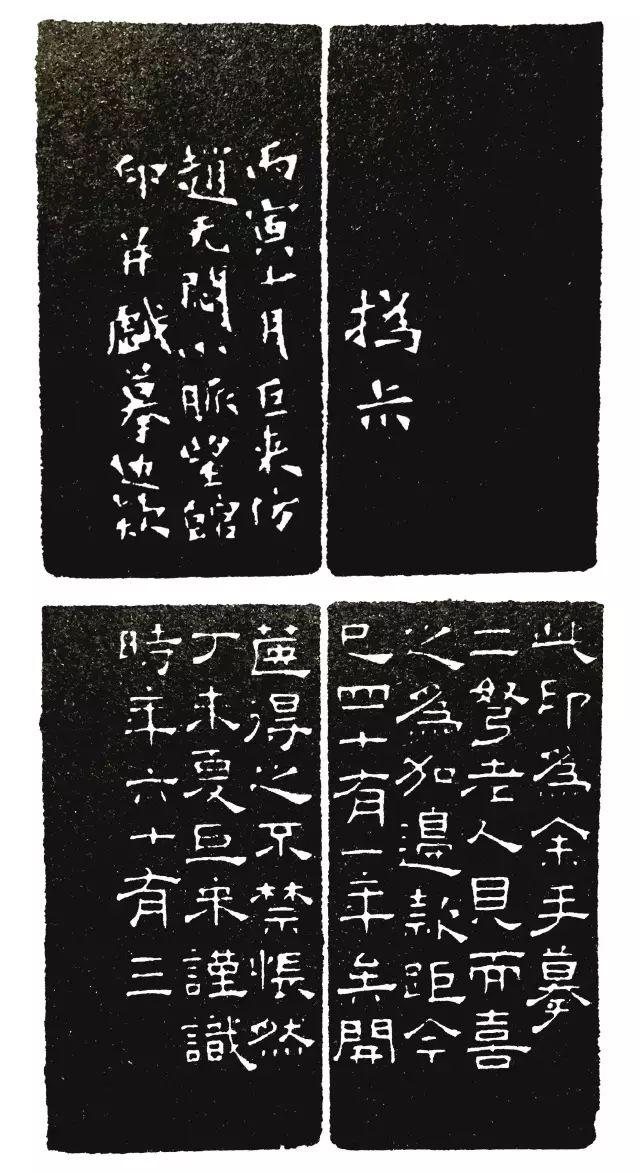 撝尗
丙寅七月巨來仿
趙无悶小脈望館
印并戲摹边款
此印爲余手摹
二弩老人見而喜
之爲加邊款距今
已四十有一年矣開
篋得之不禁悵然
丁未夏巨來謹識
時年六十有三